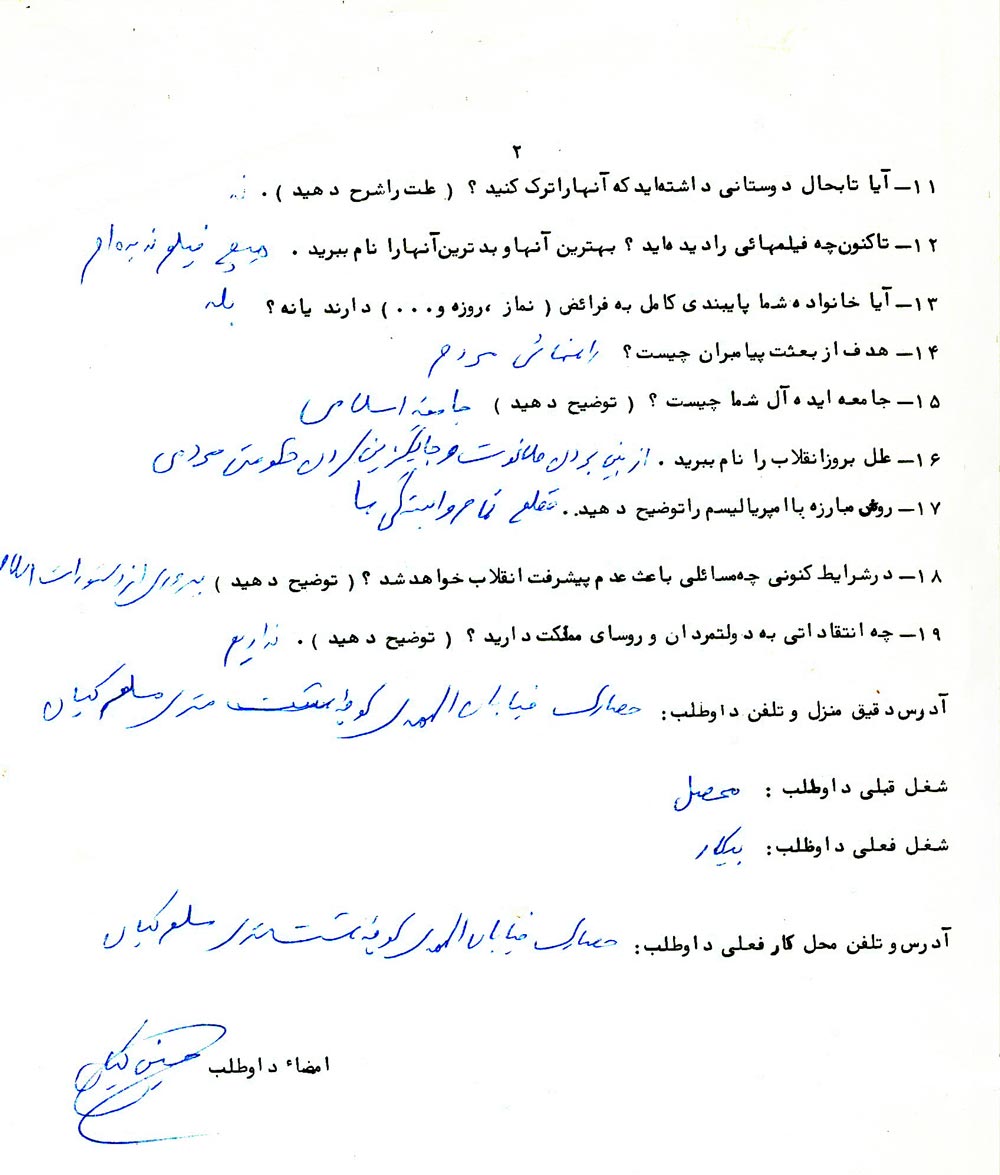 ۲
۱۱ـ آیا تابحال دوستانی داشته‌اید که آنها را ترک کنید ؟ ( علت را شرح دهید ) . نه
۱۲ـ تاکنون چه فیلمهائی را دیده‌اید ؟ بهترین آنها و بدترین آنها را نام ببرید . هیچ فیلم ندیده‌ام
۱۳ـ آیا خانواده شما پایبندی کامل به فرائض ( نماز ، روزه و . . . ) دارند یا نه ؟ بله
۱۴ـ هدف از بعثت پیامبران چیست ؟ راهنمائی مردم
۱۵ـ جامعه ایده آل شما چیست ؟ ( توضیح دهید ) جامعه اسلامی
۱۶ـ علل بروز انقلاب را نام ببرید . از بین بردن طاغوت و جایگزین کردن حکومتی مردمی
۱۷ـ روش مبارزه با امپریالیسم را توضیح دهید . . قطع تمام وابستگی ها
۱۸ـ در شرایط کنونی چه مسائلی باعث عدم پیشرفت انقلاب خواهد شد ؟ ( توضیح دهید ) از دستورات اسلام
۱۹ـ چه انتقاداتی به دولتمردان و روسای مملکت دارید ؟ ( توضیح دهید ) . نداریم
آدرس دقیق منزل و تلفن داوطلب : حصارک خیابان المهدی کوچه هشت متری مسلم کیان
شغل قبلی داوطلب : محصل
شغل فعلی داوطلب : بیکار
آدرس و تلفن محل کار فعلی داوطلب : حصارک خیابان المهدی کوچه هشت متری مسلم کیان
امضاء داوطلب حسین کیان